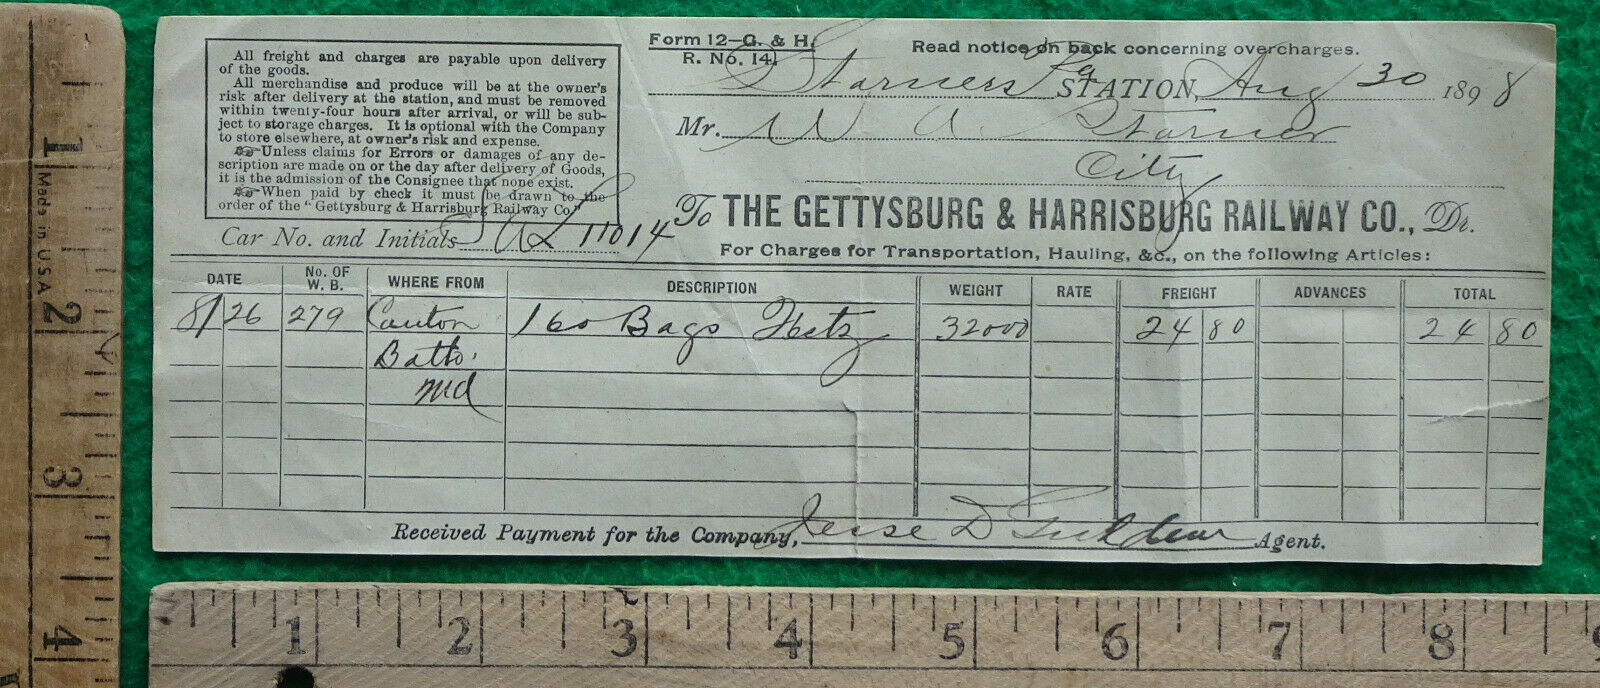 All freight and charges are payable upon delivery
of the goods.
All merchandise and produce will be at the owner's
risk after delivery at the station, and must be removed
within twenty-four hours after arrival, or will be sub-
ject to storage charges. It is optional with the Company
to store elsewhere, at owner's risk and expense.
☞Unless claims for Errors or damages of any de-
scription are made on or the day after delivery of Goods,
it is the admission of the Consignee that none exist.
☞When paid by check it must be drawn to the
order of the "Gettysburg & Harrisburg Railway Co."
Car No. and Initials 11014
Form 12—G. & H.
R. No. 141
Read notice on back concerning overcharges.
Starners Pa STATION, Aug 30 1898
Mr. W A. Starner
City
To THE GETTYSBURG & HARRISBURG RAILWAY CO., Dr.
For Charges for Transportation, Hauling, &c., on the following Articles:
DATE No. OF W. B. WHERE FROM DESCRIPTION WEIGHT RATE FREIGHT ADVANCES TOTAL
8/26 279 Canton 160 Bags 32000 24 80 24 80
Balto.
Md
Received Payment for the Company, Jesse D Agent.
1 Made in U.S.A. 2 3 4
1 2 3 4 5 6 7 8 9